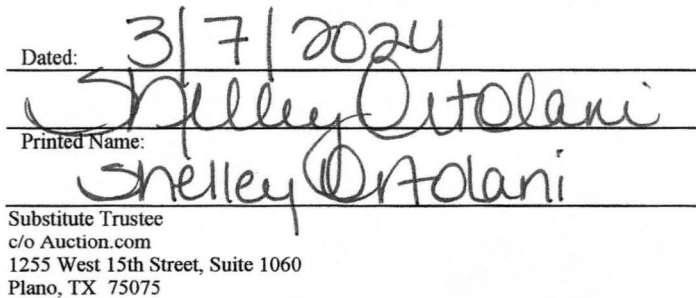 Dated: 3/7/2024
Shelley Ortolani
Printed Name:
Shelley Ortolani
Substitute Trustee
c/o Auction.com
1255 West 15th Street, Suite 1060
Plano, TX 75075